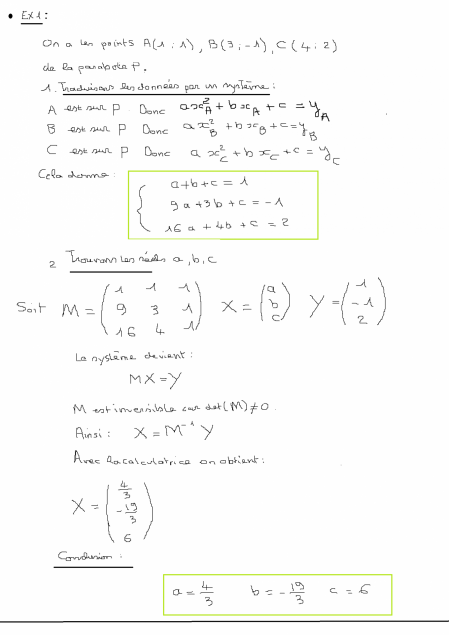 • Ex 1 :
On a les points A(1 ; 1), B(3 ; -1), C(4 ; 2)
de la parabole P.
1. Traduisons les données par un système :
A est sur P Donc ax_A² + bx_A + c = y_A
B est sur P Donc ax_B² + bx_B + c = y_B
C est sur P Donc ax_C² + bx_C + c = y_C
Cela donne :
{ a + b + c = 1
9a + 3b + c = -1
16a + 4b + c = 2
2 Trouvons les réels a, b, c
Soit M = ( 1 1 1 ; 9 3 1 ; 16 4 1 ) X = ( a ; b ; c ) Y = ( 1 ; -1 ; 2 )
Le système devient :
MX = Y
M est inversible car det(M) ≠ 0.
Ainsi : X = M⁻¹ Y
Avec la calculatrice on obtient :
X = ( 4/3 ; -19/3 ; 6 )
Conclusion :
a = 4/3 b = -19/3 c = 6